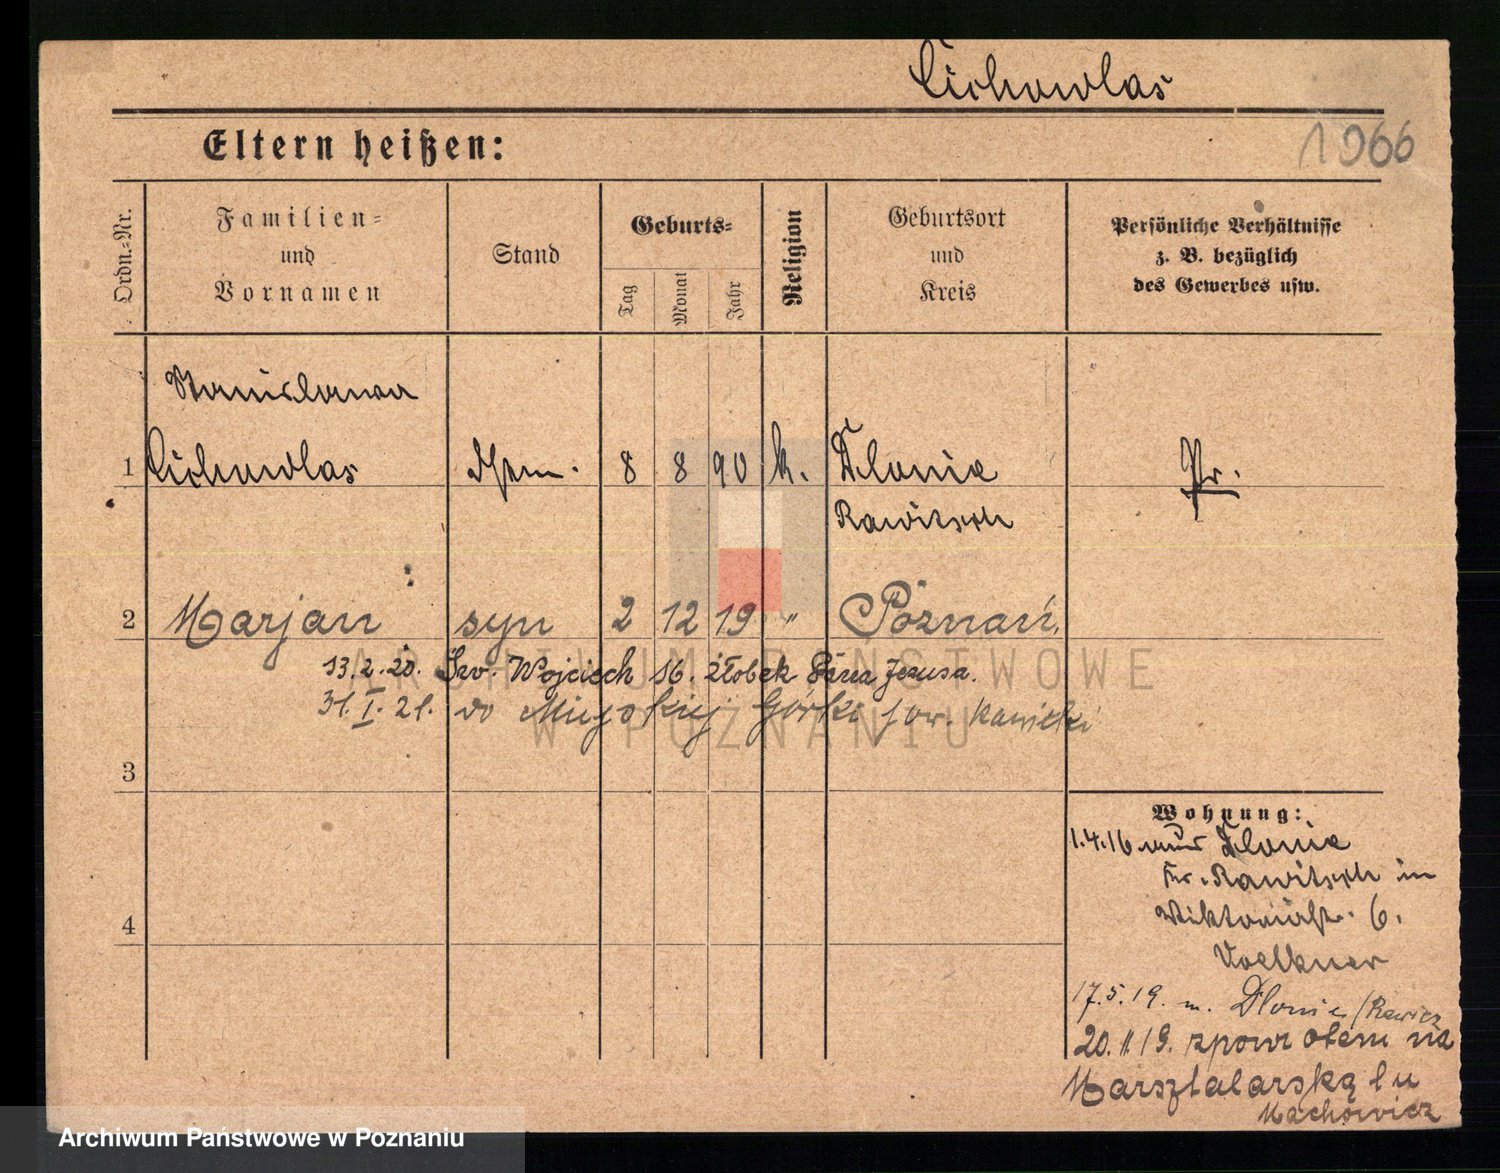 Cichowlas
Eltern heißen:
1066
Ordn.=Nr.
Familien=
und
Vornamen
Stand
Geburts=
Tag
Monat
Jahr
Religion
Geburtsort
und
Kreis
Persönliche Verhältnisse
z. B. bezüglich
des Gewerbes usw.
Stanislawa
1 Cichowlas 8 8 90 k. Dlonie Pr.
Rawitsch
2 Marjan syn 2 12 19 " Poznań,
13.2.20. Św. Wojciech 16. żłobek Pana Jezusa.
31.I.21. do Miejskiej Górki pow. Rawicki
3
Wohnung:
1.4.16 Dlonie
Kr. Rawitsch in
Viktoriastr. 6.
4
Voelkner
17.5.19. n. Dlonie/Rawicz
20.11.19. zpowrotem na
Marsztalarską
Machowicz
ARCHIWUM PAŃSTWOWE
W POZNANIU
Archiwum Państwowe w Poznaniu